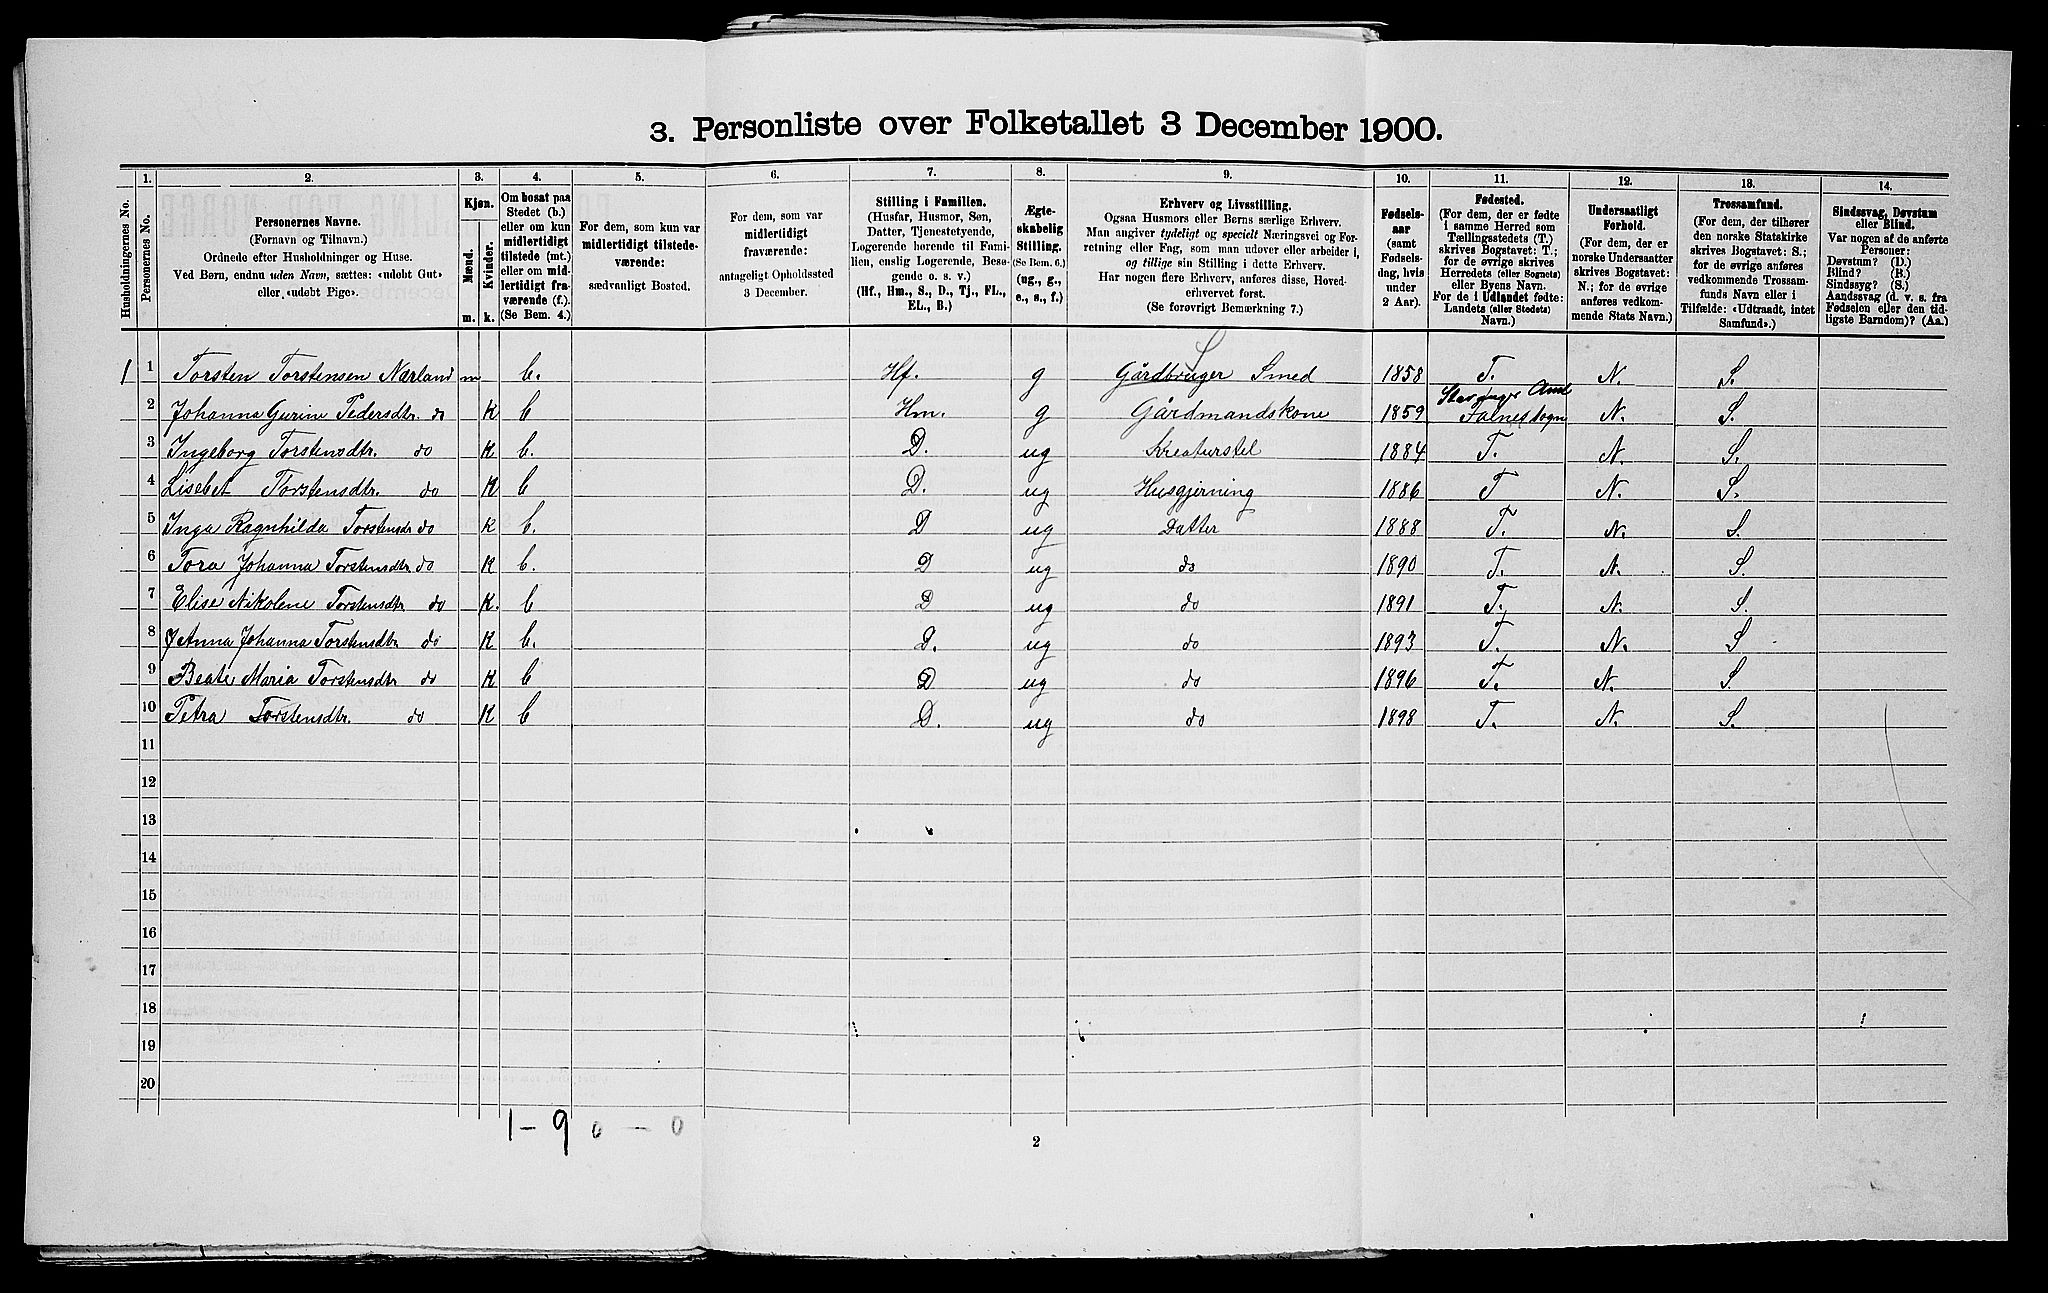 3. Personliste over Folketallet 3 December 1900.
1. 2. 3. 4. 5. 6. 7. 8. 9. 10. 11. 12. 13. 14.
Husholdningernes No.
Personernes No.
Personernes Navne.
(Fornavn og Tilnavn.)
Ordnede efter Husholdninger og Huse.
Ved Børn, endnu uden Navn, sættes: «udøbt Gut»
eller, «udøbt Pige».
Kjøn.
Mænd.
Kvinder.
m. k.
Om bosat paa
Stedet (b.)
eller om kun
midlertidigt
tilstede (mt.)
eller om mid-
lertidigt fra-
værende (f.).
(Se Bem. 4.)
For dem, som kun var
midlertidigt tilstede-
værende:
sædvanligt Bosted.
For dem, som var
midlertidigt
fraværende:
antageligt Opholdssted
3 December.
Stilling i Familien.
(Husfar, Husmor, Søn,
Datter, Tjenestetyende,
Logerende hørende til Fami-
lien, enslig Logerende, Besø-
gende o. s. v.)
(Hf., Hm., S., D., Tj., FL.,
EL., B.)
Ægte-
skabelig
Stilling.
(Se Bem. 6.)
(ug., g.,
e., s., f.)
Erhverv og Livsstilling.
Ogsaa Husmors eller Børns særlige Erhverv.
Man angiver tydeligt og specielt Næringsvei og For-
retning eller Fag, som man udøver eller arbeider i,
og tillige sin Stilling i dette Erhverv.
Har nogen flere Erhverv, anføres disse, Hoved-
erhvervet først.
(Se forøvrigt Bemærkning 7.)
Fødsels-
aar
(samt
Fødsels-
dag, hvis
under
2 Aar).
Fødested.
(For dem, der er fødte
i samme Herred som
Tællingsstedets (T.)
skrives Bogstavet: T.;
for de øvrige skrives
Herredets (eller Sognets)
eller Byens Navn.
For de i Udlandet fødte:
Landets (eller Stedets)
Navn.)
Undersaatligt
Forhold.
(For dem, der er
norske Undersaatter
skrives Bogstavet:
N.; for de øvrige
anføres vedkom-
mende Stats Navn.)
Trossamfund.
(For dem, der tilhører
den norske Statskirke
skrives Bogstavet: S.;
for de øvrige anføres
vedkommende Trossam-
funds Navn eller i
Tilfælde: «Udtraadt, intet
Samfund».)
Sindssvag, Døvstum
eller Blind.
Var nogen af de anførte
Personer:
Døvstum? (D.)
Blind? (B.)
Sindssyg? (S.)
Aandssvag (d. v. s. fra
Fødselen eller den tid-
ligste Barndom)? (Aa.)
1 1 Torsten Torstensen Nærland m b. Hf. g Gårdbruger Smed 1858 T. N. S.
Stavanger Amt
2 Johanna Gurine Pedersdtr. do K b Hm. g Gårdmandskone 1859 Falnessogn N. S.
3 Ingeborg Torstensdtr. do K b. D. ug Kreaturstel 1884 T. N. S.
4 Lisebet Torstensdtr. do K b D. ug Husgjerning 1886 T N. S.
5 Inga Ragnhilda Torstensdr do K b. D ug Datter 1888 T. N. S.
6 Tora Johanna Torstensdtr. do K b. D ug do 1890 T. N. S.
7 Elise Nikolene Torstensdtr do K. b D ug do 1891 T. N. S.
8 Anna Johanna Torstensdtr do K b. D. ug do 1893 T. N. S
9 Beate Maria Torstensdtr do K b D ug do 1896 T. N. S
10 Petra Torstensdtr. do K b D. ug do 1898 T. N. S.
11
12
13
14
15
16
17
18
19
20
1 - 9 0 - 0
2